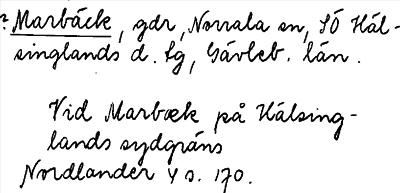 ? Marbäck, gdr, Norrala sn, SÖ Häl-
singlands d. sg, Gävleb. län.
Vid Marbæk på Hälsing-
lands sydgräns
Nordlander 4 s. 170.